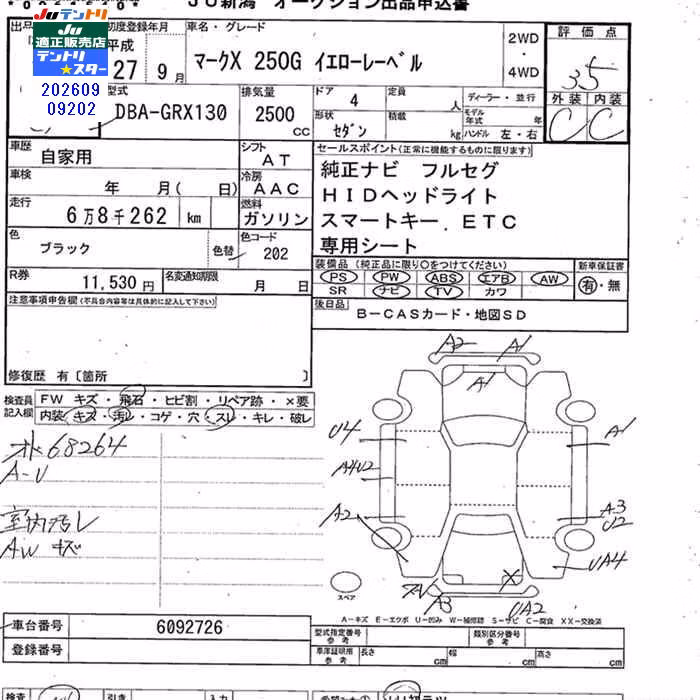 JU新潟 オークション出品申込書
JUテントリ
適正販売店
テントリ
スター
202609
09202
初度登録年月
平成
27 9月
車名・グレード
マークX 250G イエローレーベル
2WD
・
4WD
評価点
3.5
外装 内装
C C
型式
DBA-GRX130
排気量
2500
CC
ドア 4
形状
セダン
定員
人
積載
kg
ディーラー・並行
モデル
年式 年
ハンドル 左・右
車歴
自家用
シフト
AT
車検
年 月( 日)
冷房
AAC
走行
6万8千262 km
燃料
ガソリン
色
ブラック
色替
色コード
202
R券
11,530円
名変通知期限
月 日
セールスポイント(正常に機能するものに限ります)
純正ナビ フルセグ
HIDヘッドライト
スマートキー．ETC
専用シート
装備品(純正品に限り○をつけてください)
PS PW ABS エアB AW
SR ナビ TV カワ
新車保証書
有・無
後日品
B-CASカード・地図SD
注意事項申告欄(不具合内容等は具体的に記入して下さい)
修復歴 有〔箇所 〕
検査員
記入欄
FW キズ・飛石・ヒビ割・リペア跡・×要
内装 キズ・汚レ・コゲ・穴・スレ・キレ・破レ
68264
A-U
室内汚レ
AW キズ
A2
A1
A1
U4
A1
A4U2
A2
A3
U2
UA4
A3
UA2
スペア
A-キズ E-エクボ U-凹み W-補修跡 S-サビ C-腐食 XX-交換済
車台番号
6092726
登録番号
型式指定番号
参考
類別区分番号
参考
車庫証明用
参考
長さ cm
幅 cm
高さ cm
検査
引き
入力